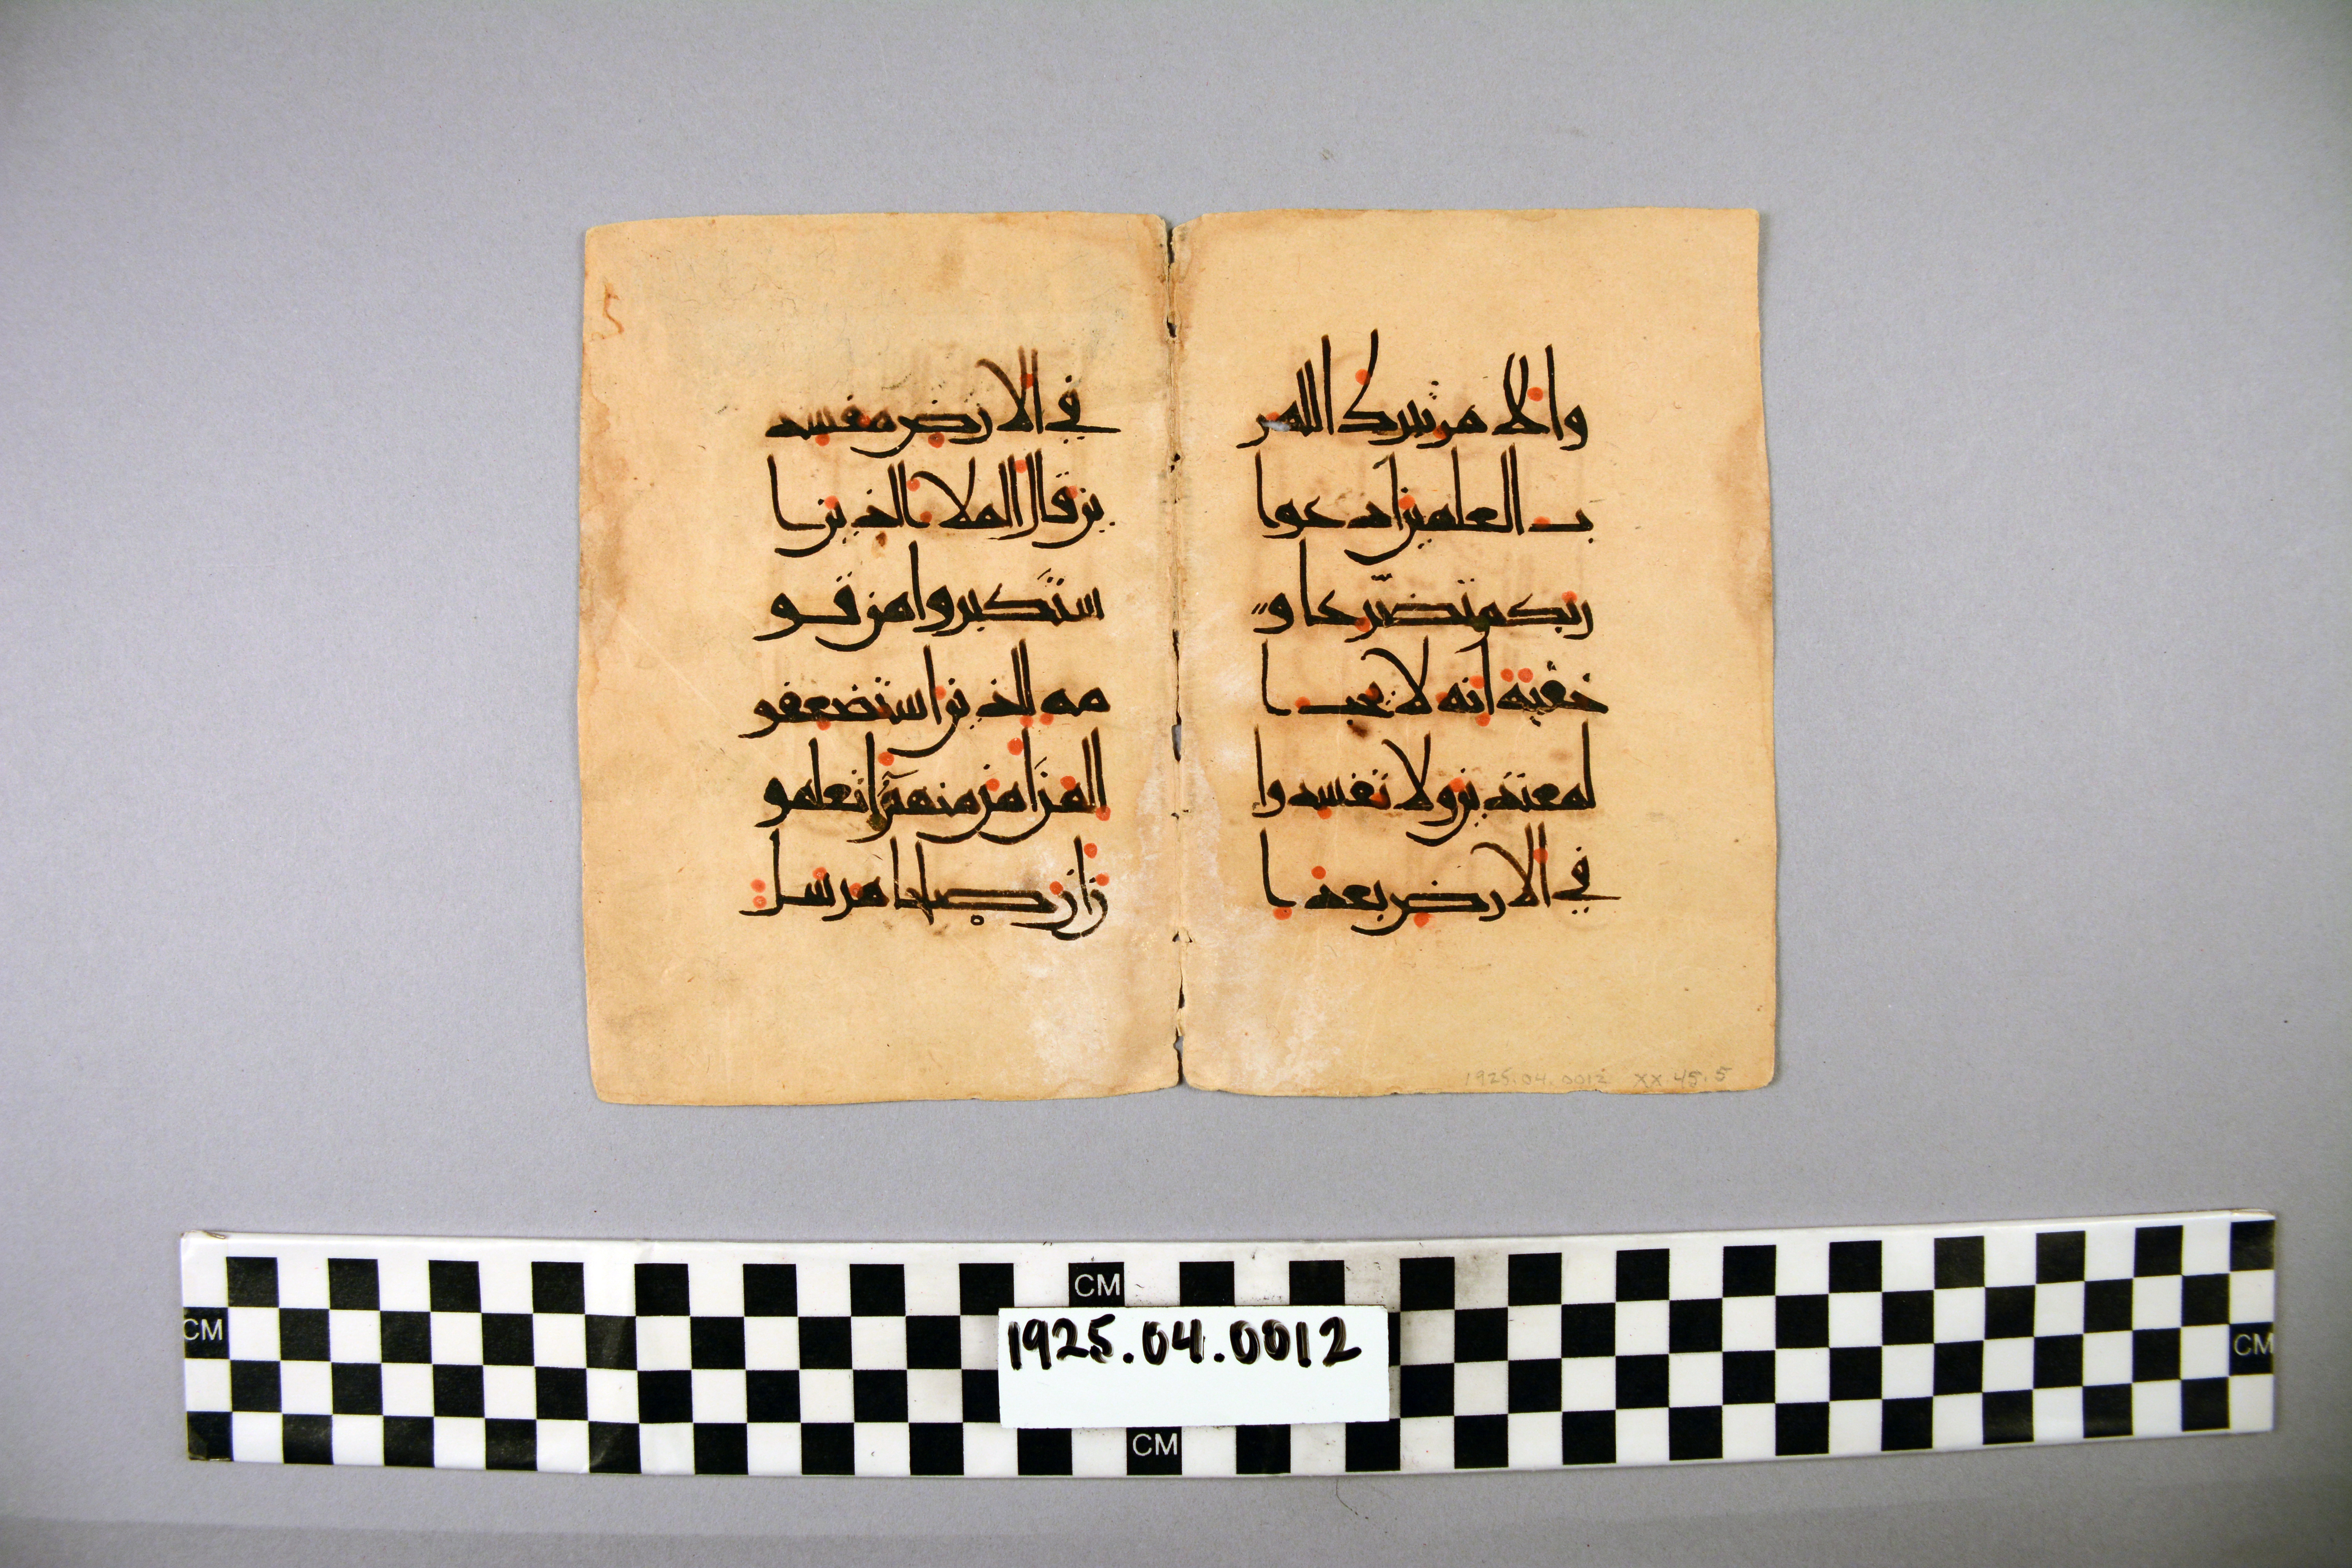 والامر تبرك الله ر
ب العلمين ادعوا
ربكم تضرعا و
خفية انه لا يحب ا
لمعتدين ولا تفسدوا
في الارض بعد ا
في الارض مفسد
ين قال الملا الذين ا
ستكبروا من قو
مه للذين استضعفو
المن امن منهم اتعلمو
ن ان صلحا مرسل
5
1925.04.0012 XX.45.5
CM
CM
CM
1925.04.0012
CM